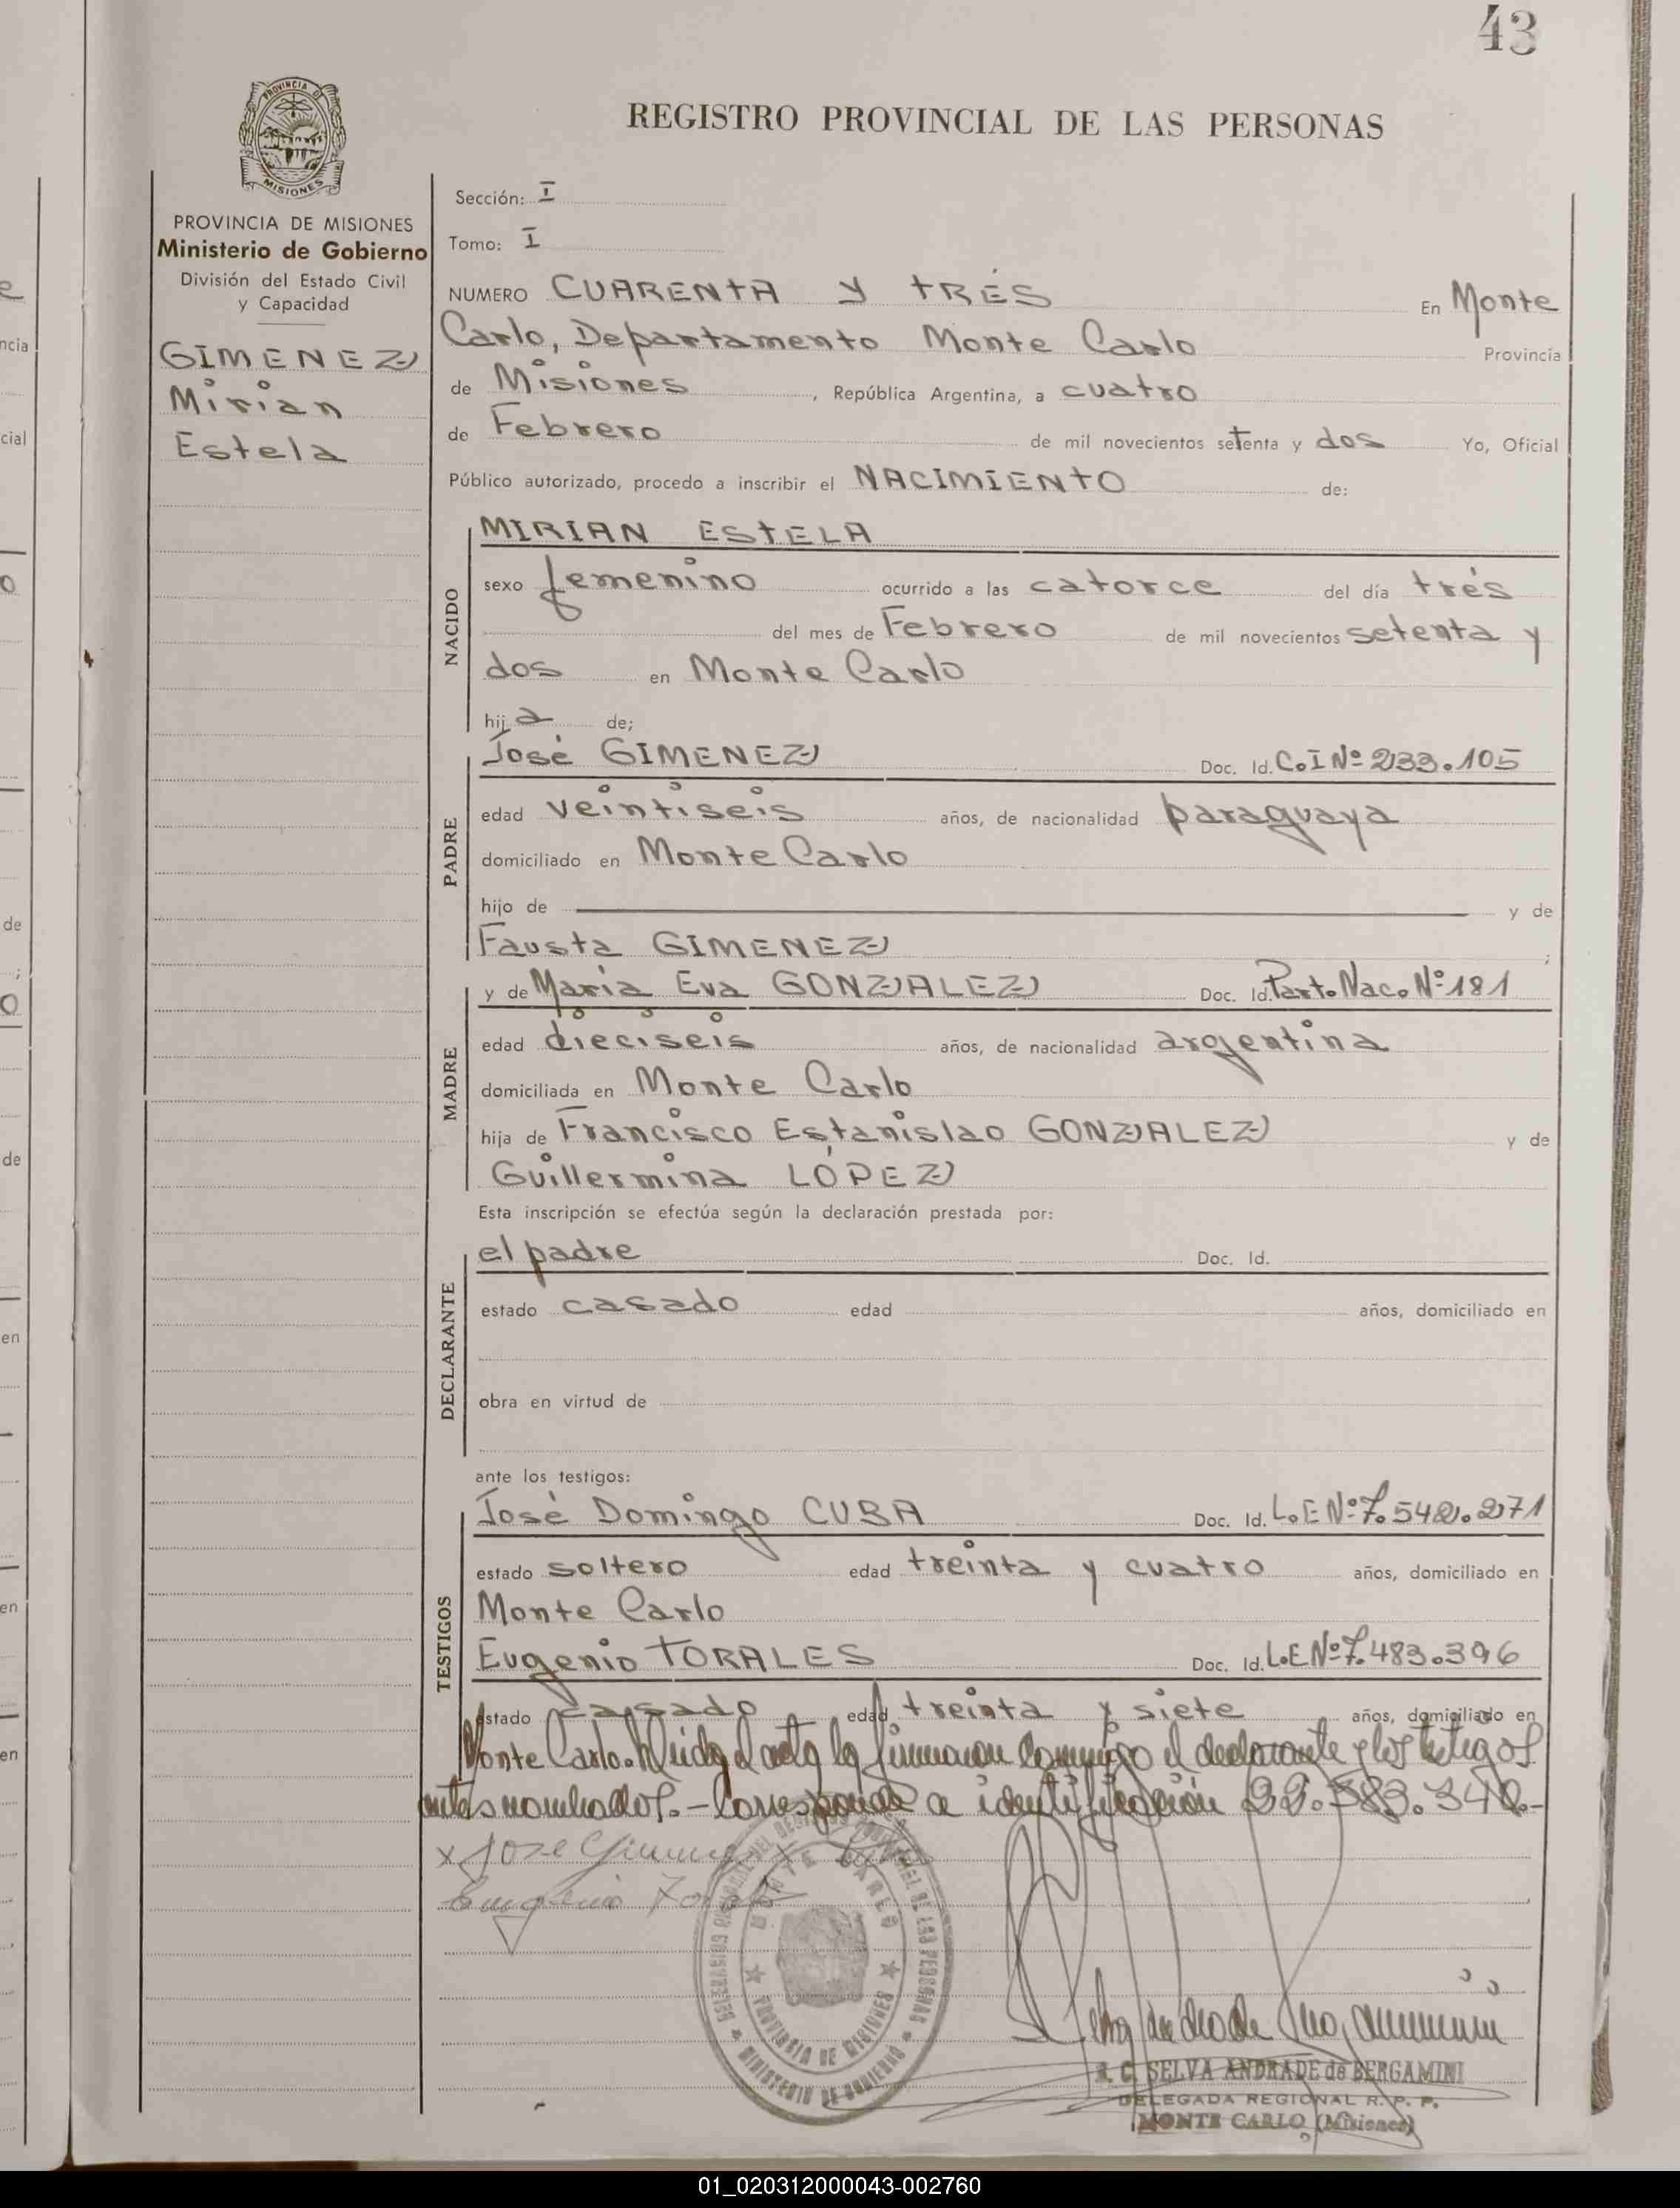 43
REGISTRO PROVINCIAL DE LAS PERSONAS
PROVINCIA DE MISIONES
Ministerio de Gobierno
División del Estado Civil
y Capacidad
GIMENEZ
Mirian
Estela
Sección: I
Tomo: I
NUMERO CUARENTA Y TRÉS En Monte
Carlo, Departamento Monte Carlo Provincia
de Misiones, República Argentina, a cuatro
de Febrero de mil novecientos setenta y dos Yo, Oficial
Público autorizado, procedo a inscribir el NACIMIENTO de:
NACIDO
MIRIAN ESTELA
sexo femenino ocurrido a las catorce del día trés
del mes de Febrero de mil novecientos setenta y
dos en Monte Carlo
hija de;
PADRE
José GIMENEZ Doc. Id. C.I Nº 233.105
edad veintiseis años, de nacionalidad paraguaya
domiciliado en Monte Carlo
hijo de y de
Fausta GIMENEZ ;
MADRE
y de María Eva GONZALEZ Doc. Id. Part. Nac. Nº 181
edad dieciseis años, de nacionalidad argentina
domiciliada en Monte Carlo
hija de Francisco Estanislao GONZALEZ y de
Guillermina LÓPEZ
Esta inscripción se efectúa según la declaración prestada por:
DECLARANTE
el padre Doc. Id.
estado casado edad años, domiciliado en
obra en virtud de
ante los testigos:
TESTIGOS
José Domingo CUBA Doc. Id. L.E Nº 7.542.271
estado soltero edad treinta y cuatro años, domiciliado en
Monte Carlo
Eugenio TORALES Doc. Id. L.E Nº 7.483.396
estado casado edad treinta y siete años, domiciliado en
Monte Carlo. Leida el acta la firmaron conmigo el declarante y los testigos
antes nombrados.- Corresponde a identificación 22.383.340.-
x Jose Gimenez
Eugenio Torales
MONTE CARLO
PROVINCIA DE MISIONES
MINISTERIO DE GOBIERNO
R. C. SELVA ANDRADE de BERGAMINI
DELEGADA REGIONAL R. P. P.
MONTE CARLO (Misiones)
01_020312000043-002760